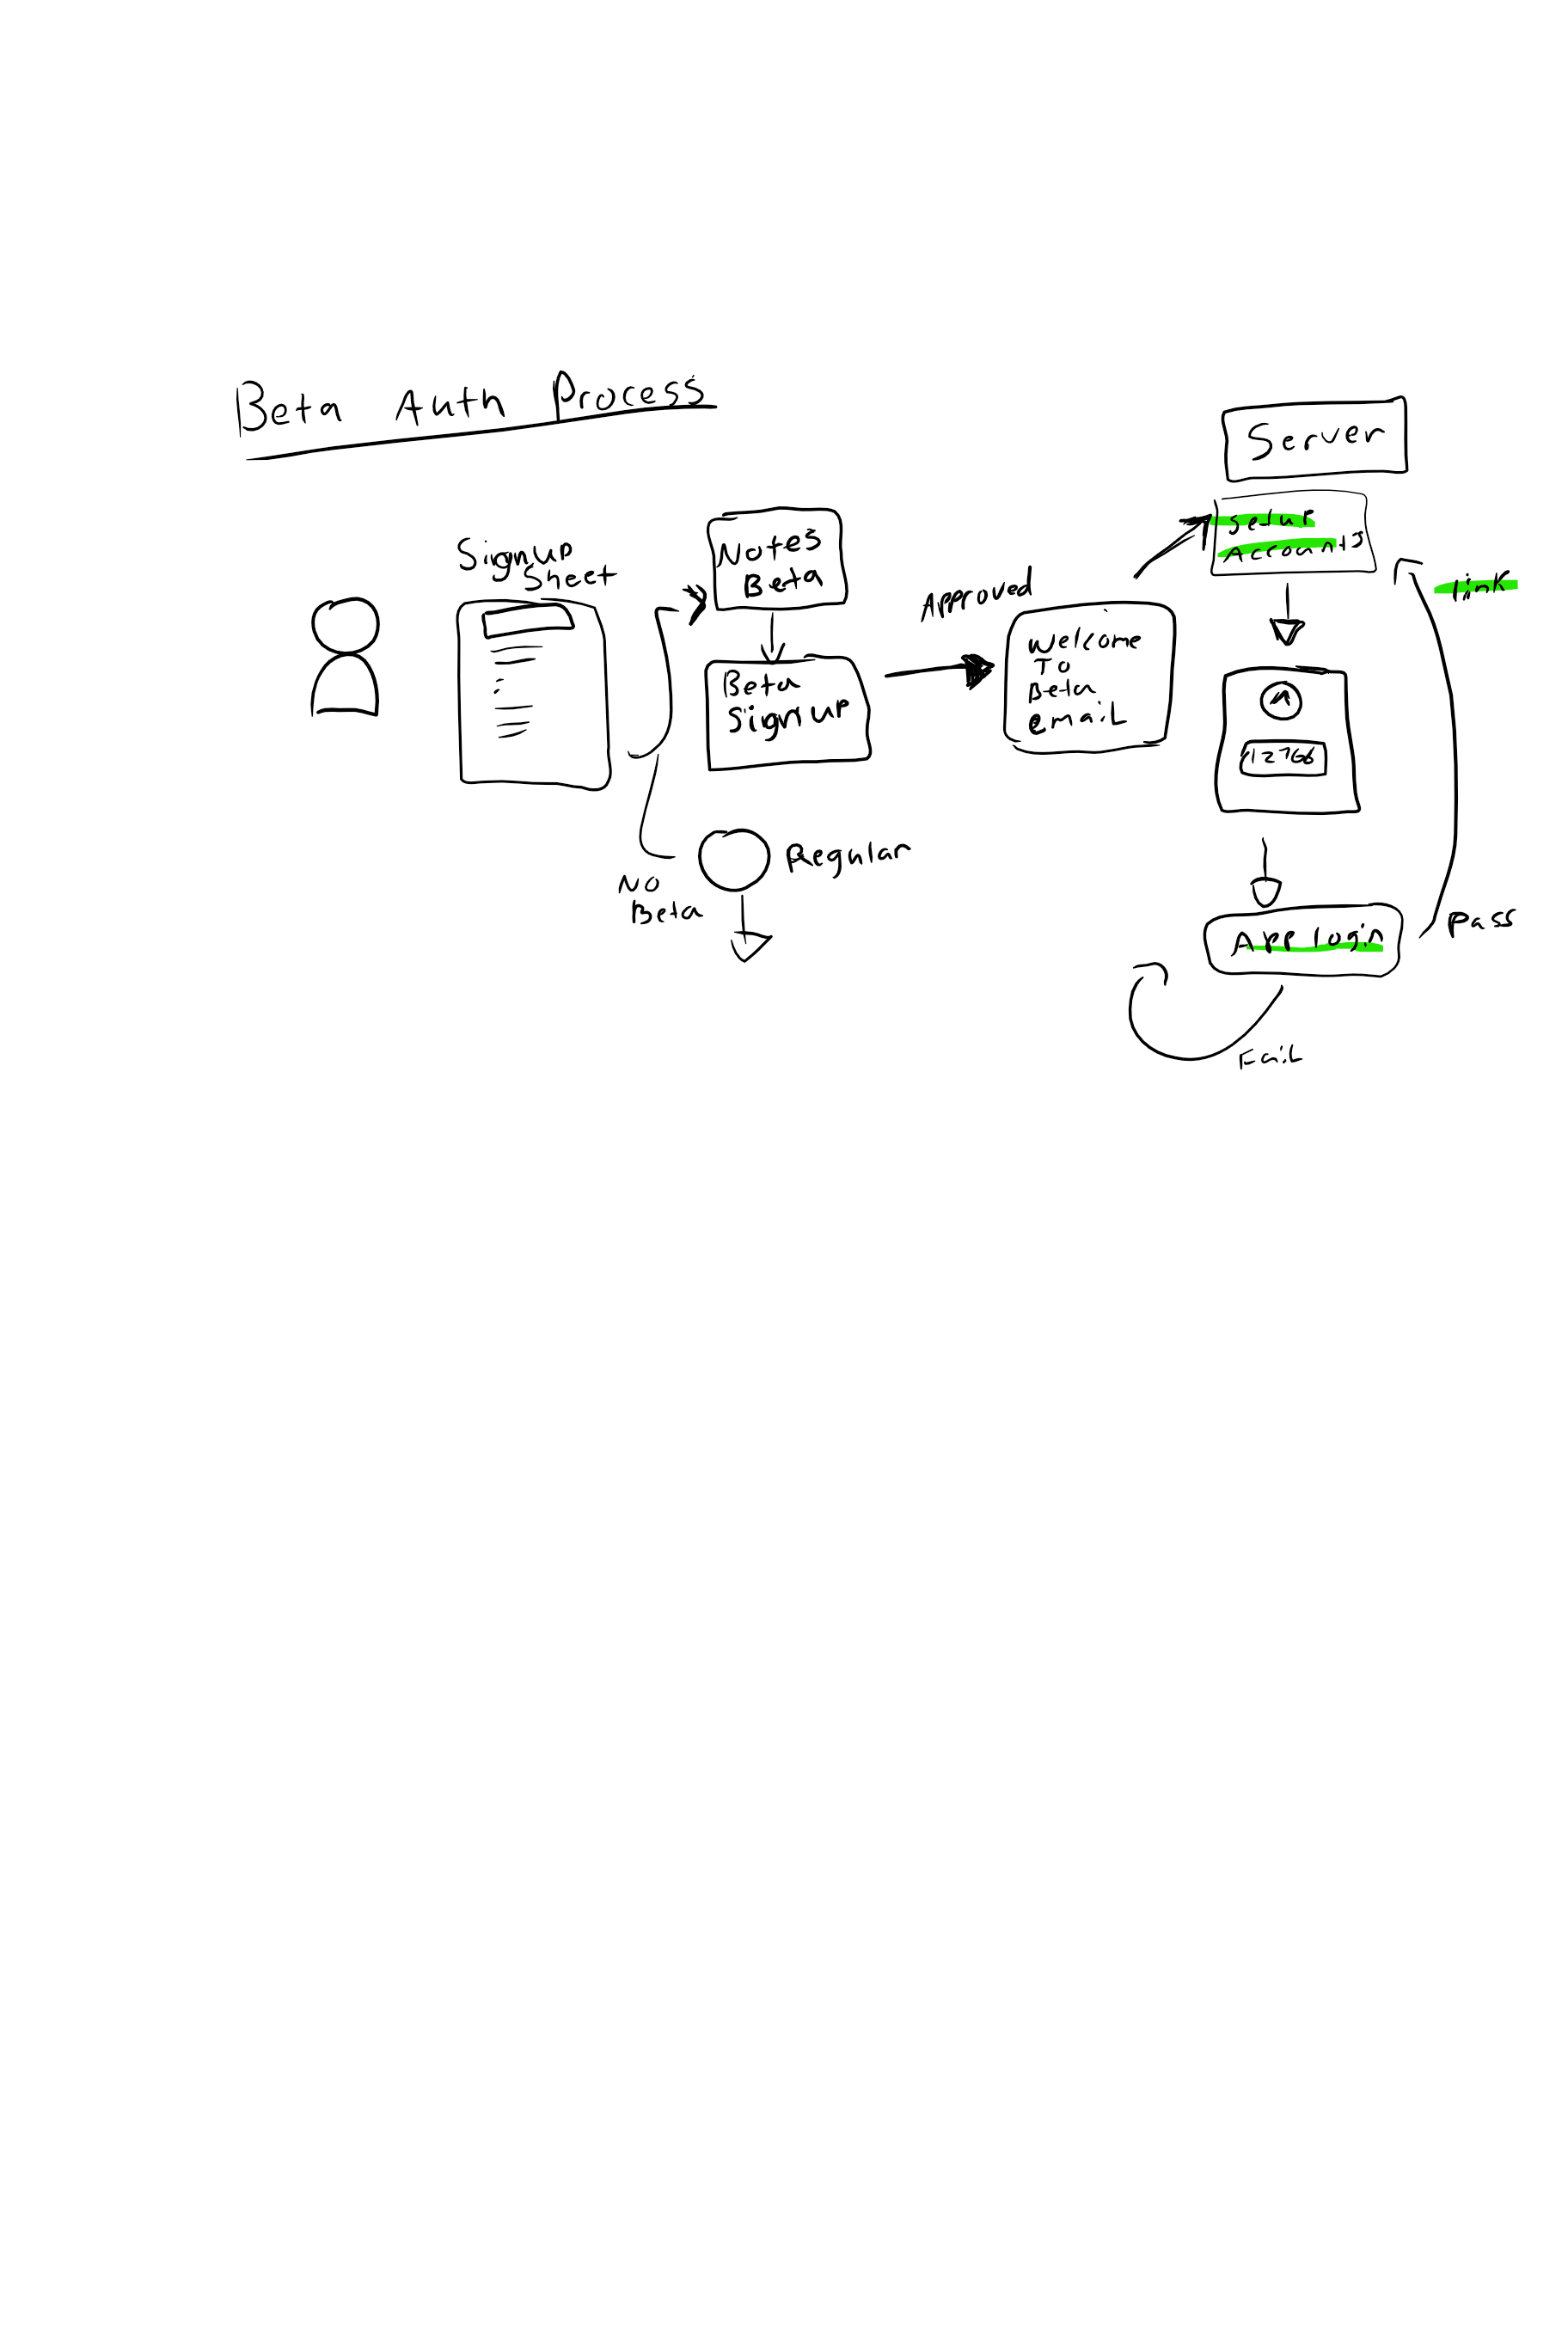 Beta Auth Process
Signup
Sheet
Notes
Beta
Beta
Signup
No
Beta
Regular
Approved
Welcome
To
Beta
email
Server
Setup
Accounts
link
App login
Pass
Fail